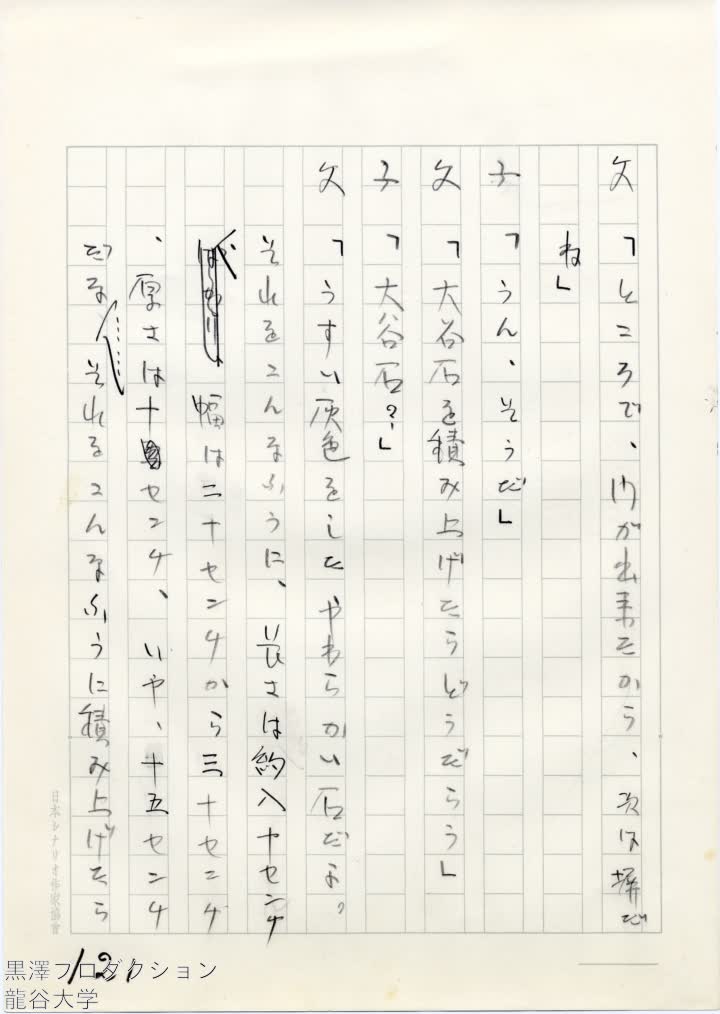 父「ところで、門が出来たから、次は塀だ
ね」
子「うん、そうだ」
父「大谷石を積み上げたらどうだらう」
子「大谷石?」
父「うすい灰色をしたやわらかい石だよ。
それをこんなふうに、長さは約八十センチ
が 幅は二十センチから三十センチ
、厚さは十センチ、いや、十五センチ
だな それをこんなふうに積み上げたら
日本シナリオ作家協會
121
黒澤プロダクション
龍谷大学